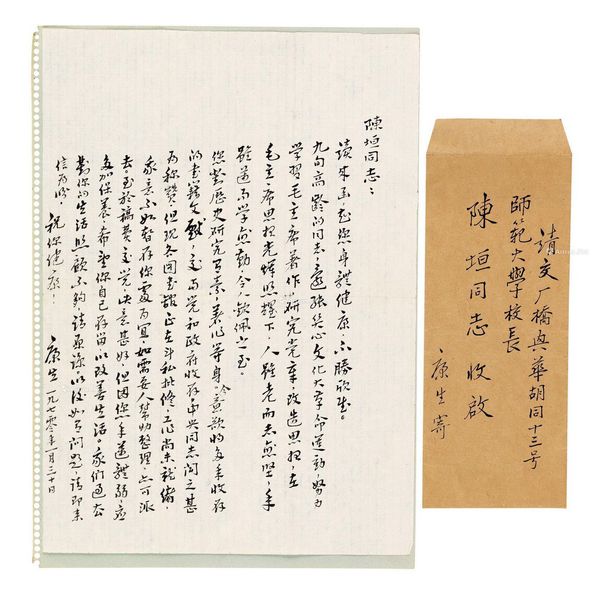 陳垣同志：
讀來函，知您身體健康，不勝欣慰。
九旬高齡的同志，還能關心文化大革命運動，努力
學習毛主席著作，研究党章，改造思想，在
毛主席思想光輝照耀下，人雖老而志愈堅，年
雖邁而學愈勤，令人欽佩之至。
您對歷史研究有素，著作等身。今意欲将多年收存
的書籍文獻，交与党和政府收存，中央同志闻之甚
為稱赞。但現各图書館正在斗私批修，工作尚未就緒，
我意不如暫存你處為宜，如需要人幫助整理，亦可派
去。至於稿費交党，决意甚好，但因您年邁體弱，應
多加保養，希望你自己存留以改善生活。我們过去
對你的生活照顧不夠，請原諒。以後如有問題，請即來
信為盼。
祝你健康！
康生 一九七零年一月三十日
請交厂橋興華胡同十三号
師範大學校長
陳垣同志 收啟
康生寄